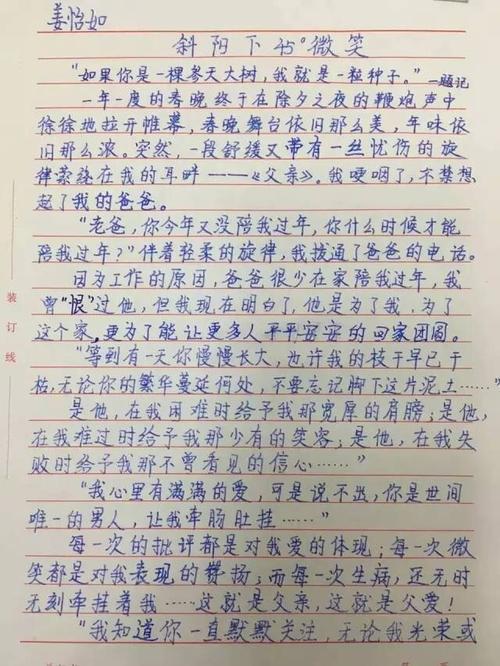 姜怡如
斜阳下45°微笑
“如果你是一棵参天大树，我就是一粒种子。”—题记
一年一度的春晚终于在除夕之夜的鞭炮声中
徐徐地拉开帷幕，春晚舞台依旧那么美，年味依
旧那么浓。突然，一段舒缓又带有一丝忧伤的旋
律萦绕在我的耳畔——《父亲》。我哽咽了，不禁想
起了我的爸爸。
“老爸，你今年又没陪我过年，你什么时候才能
陪我过年？”伴着轻柔的旋律，我拨通了爸爸的电话。
因为工作的原因，爸爸很少在家陪我过年，我
曾“恨”过他，但我现在明白了，他是为了我，为了
这个家，更为了能让更多人平平安安的回家团圆。
“等到有一天你慢慢长大，也许我的枝干早已干
枯，无论你的繁华蔓延何处，不要忘记脚下这片泥土……”
是他，在我困难时给予我那宽厚的肩膀；是他，
在我难过时给予我那少有的笑容；是他，在我失
败时给予我那不曾看见的信心……”
“我心里有满满的爱，可是说不出，你是世间
唯一的男人，让我牵肠肚挂……”
每一次的批评都是对我爱的体现；每一次微
笑都是对我表现的赞扬；而每一次生病，还无时
无刻牵挂着我……这就是父亲，这就是父爱！
“我知道你一直默默关注，无论我光荣或
装订线